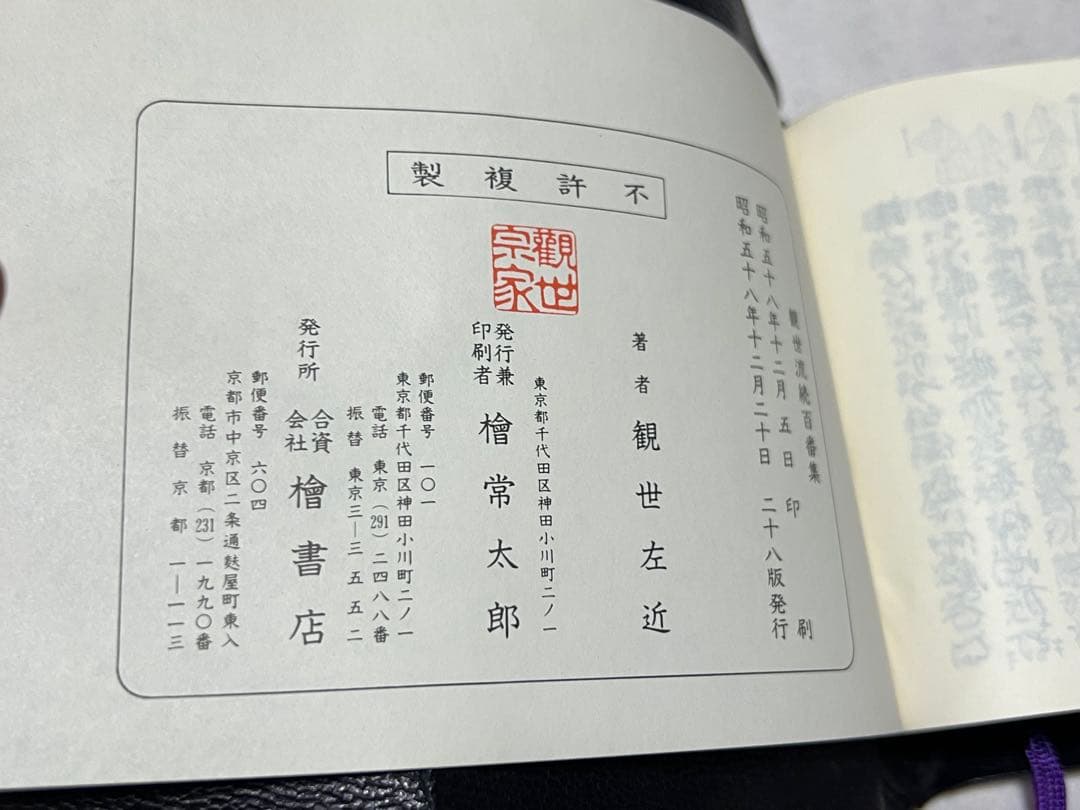 不許複製
観世流続百番集
昭和五十八年十二月五日 印刷
昭和五十八年十二月二十日 二十八版発行
著者 観世左近
東京都千代田区神田小川町二ノ一
発行兼印刷者 檜常太郎
観世宗家
郵便番号 一〇一
東京都千代田区神田小川町二ノ一
電話 東京(291)二四八八番
振替 東京三―三五五二
発行所 合資会社 檜書店
郵便番号 六〇四
京都市中京区二条通麩屋町東入
電話 京都(231)一九九〇番
振替京都 一―一一三